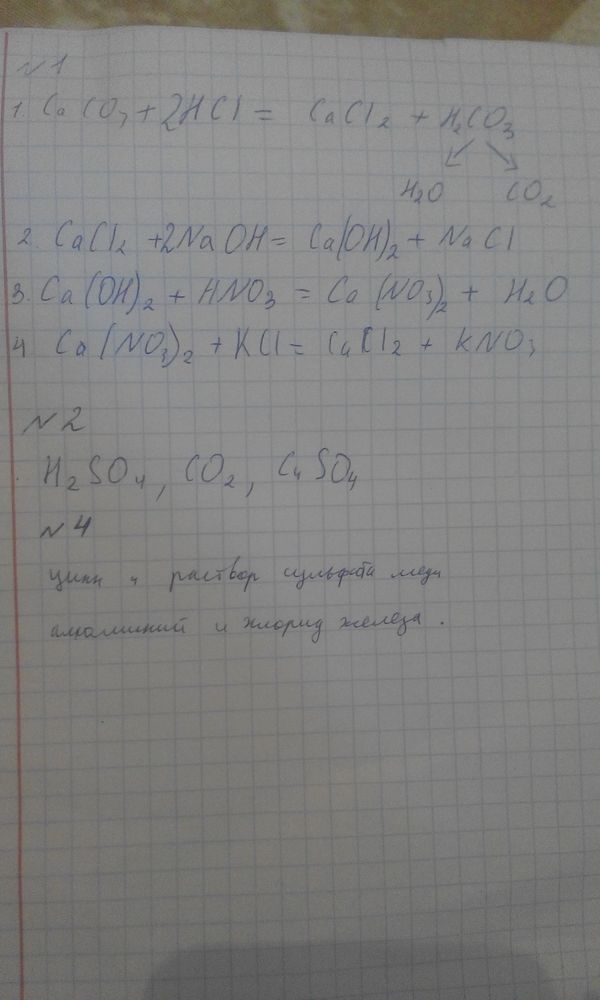 №1
1. CaCO3 + 2HCl = CaCl2 + H2CO3
H2O CO2
2. CaCl2 + 2NaOH = Ca(OH)2 + NaCl
3. Ca(OH)2 + HNO3 = Ca(NO3)2 + H2O
4 Ca(NO3)2 + KCl = CaCl2 + KNO3
№2
H2SO4, CO2, CuSO4
№4
цинк и раствор сульфата меди
алюминий и хлорид железа.